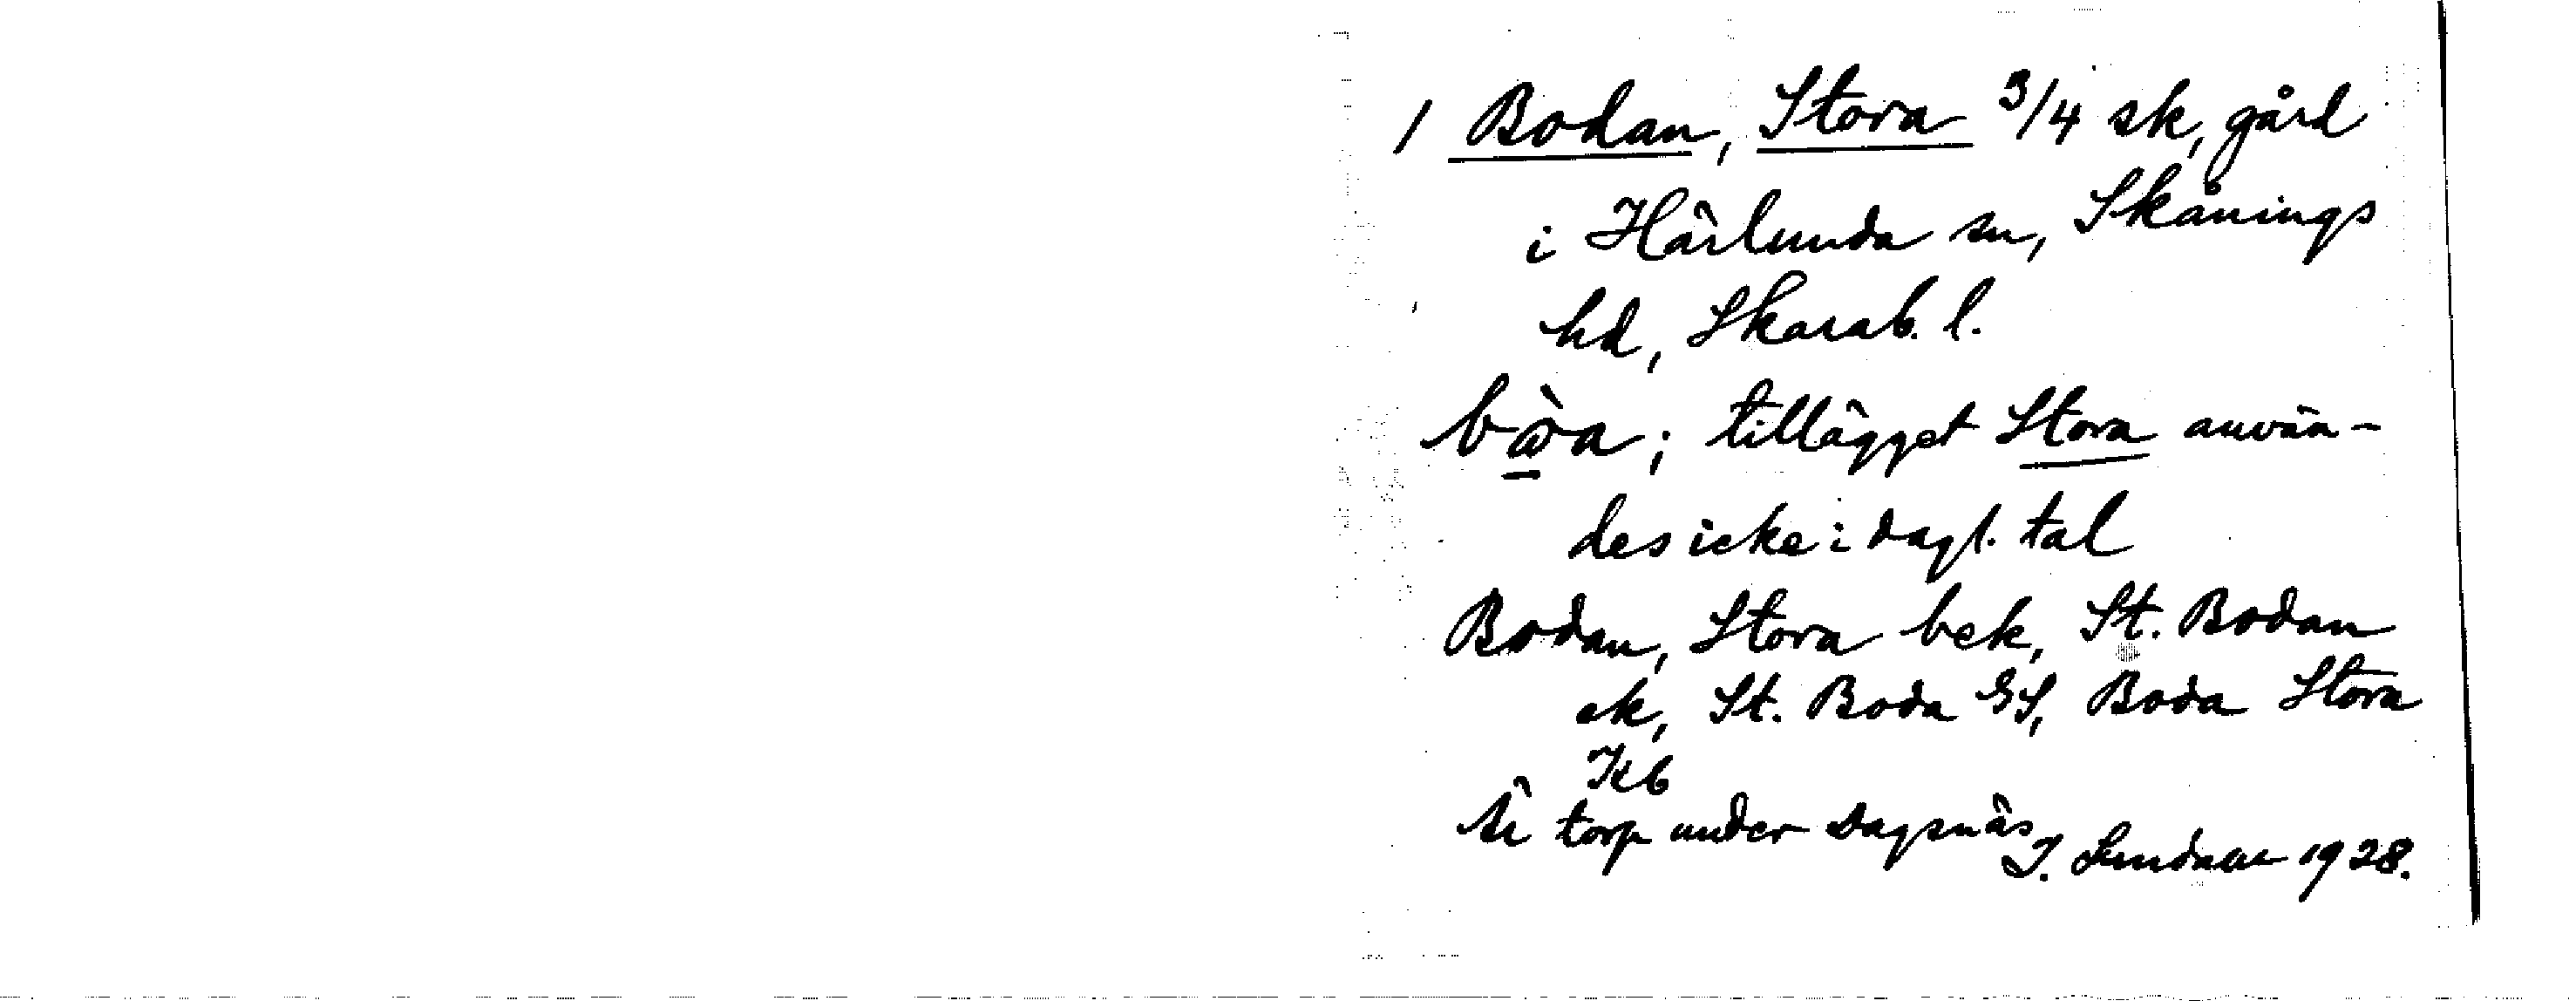 1 Bodan, Stora 3/4 sk, gård
i Härlunda sn, Skånings
hd, Skarab. l.
bàa; tillägget Stora använ-
des icke i dagl. tal
Bodan, Stora bek, St. Bodan
ek, St. Boda GS, Boda Stora
Kb
Är torp under Dagsnäs
I. Lundahl 1928.